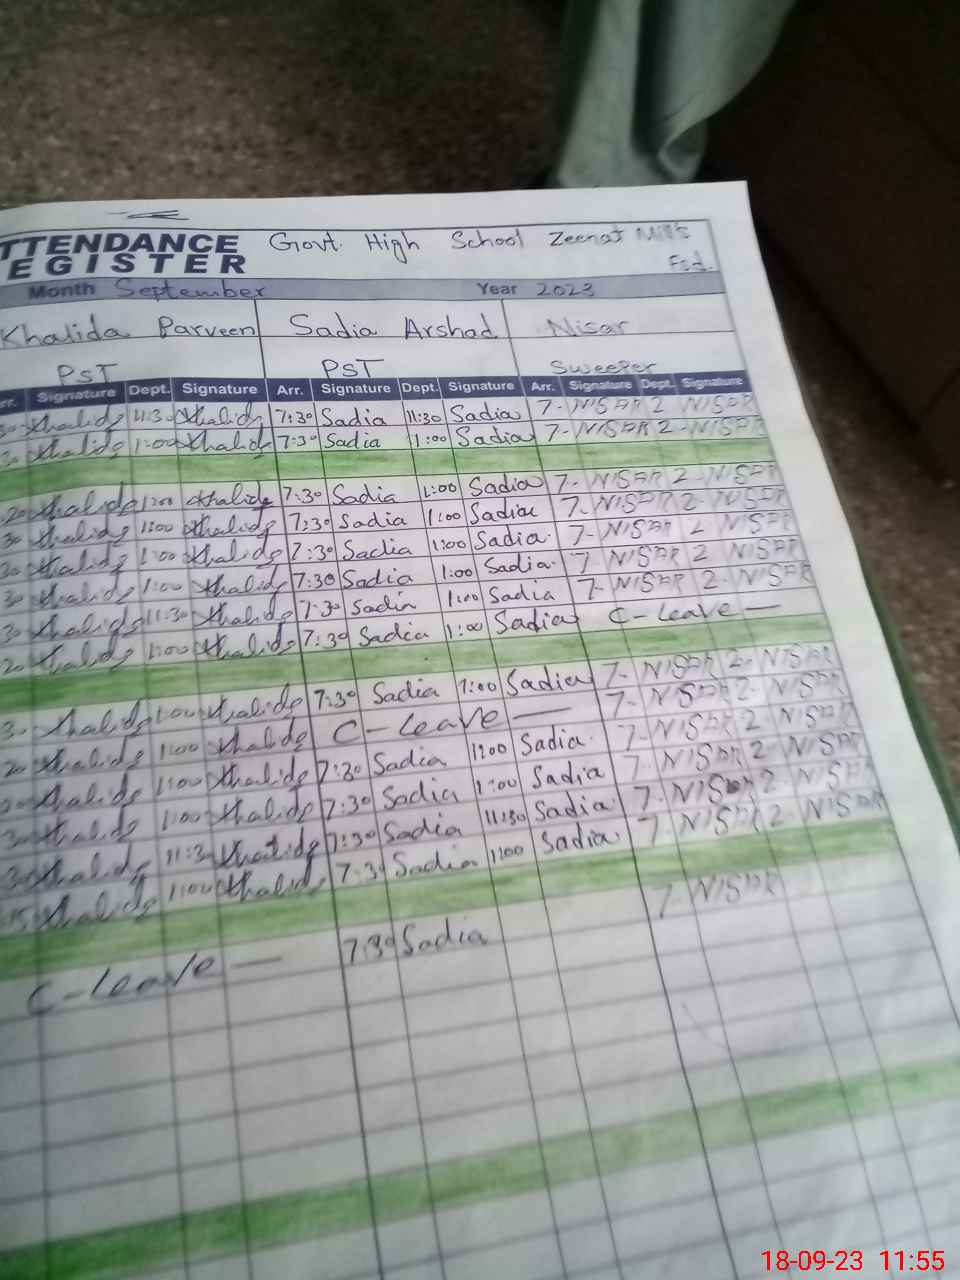 TTENDANCE Govt. High School Zeenat Mills
EGISTER Fsd.
Month September Year 2023
Khalida Parveen Sadia Arshad Nisar
PST PST Sweeper
rr. Signature Dept. Signature Arr. Signature Dept. Signature Arr. Signature Dept. Signature
30 Khalida 11:30 Khalida 7:30 Sadia 11:30 Sadia 7- NISAR 2 NISAR
30 Khalida 1:00 Khalida 7:30 Sadia 1:00 Sadia 7- NISAR 2- NISAR
20 Khalida 1:00 Khalida 7:30 Sadia 1:00 Sadia 7- NISAR 2- NISAR
30 Khalida 1:00 Khalida 7:30 Sadia 1:00 Sadia 7- NISAR 2- NISAR
30 Khalida 1:00 Khalida 7:30 Sadia 1:00 Sadia 7- NISAR 2 NISAR
30 Khalida 1:00 Khalida 7:30 Sadia 1:00 Sadia 7- NISAR 2 NISAR
30 Khalida 11:30 Khalida 7:30 Sadia 1:00 Sadia 7- NISAR 2- NISAR
20 Khalida 1:00 Khalida 7:30 Sadia 1:00 Sadia C-Leave —
3- Khalida 1:00 Khalida 7:30 Sadia 1:00 Sadia 7- NISAR 2- NISAR
20 Khalida 1:00 Khalida C-Leave — 7- NISAR 2- NISAR
Khalida 1:00 Khalida 7:30 Sadia 1:00 Sadia 7- NISAR 2 NISAR
30 Khalida 1:00 Khalida 7:30 Sadia 1:00 Sadia 7- NISAR 2 NISAR
30 Khalida 11:30 Khalida 7:30 Sadia 11:30 Sadia 7- NISAR 2- NISAR
15 Khalida 1:00 Khalida 7:30 Sadia 1:00 Sadia 7- NISAR 2- NISAR
C-Leave — 7:30 Sadia 7- NISAR
18-09-23 11:55